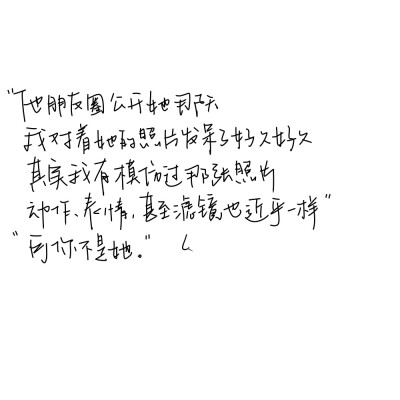 "他朋友圈公开她那天
我对着她的照片发呆了好久好久
其实我有模仿过那张照片
动作、表情，甚至滤镜也近乎一样"
"可你不是她。"